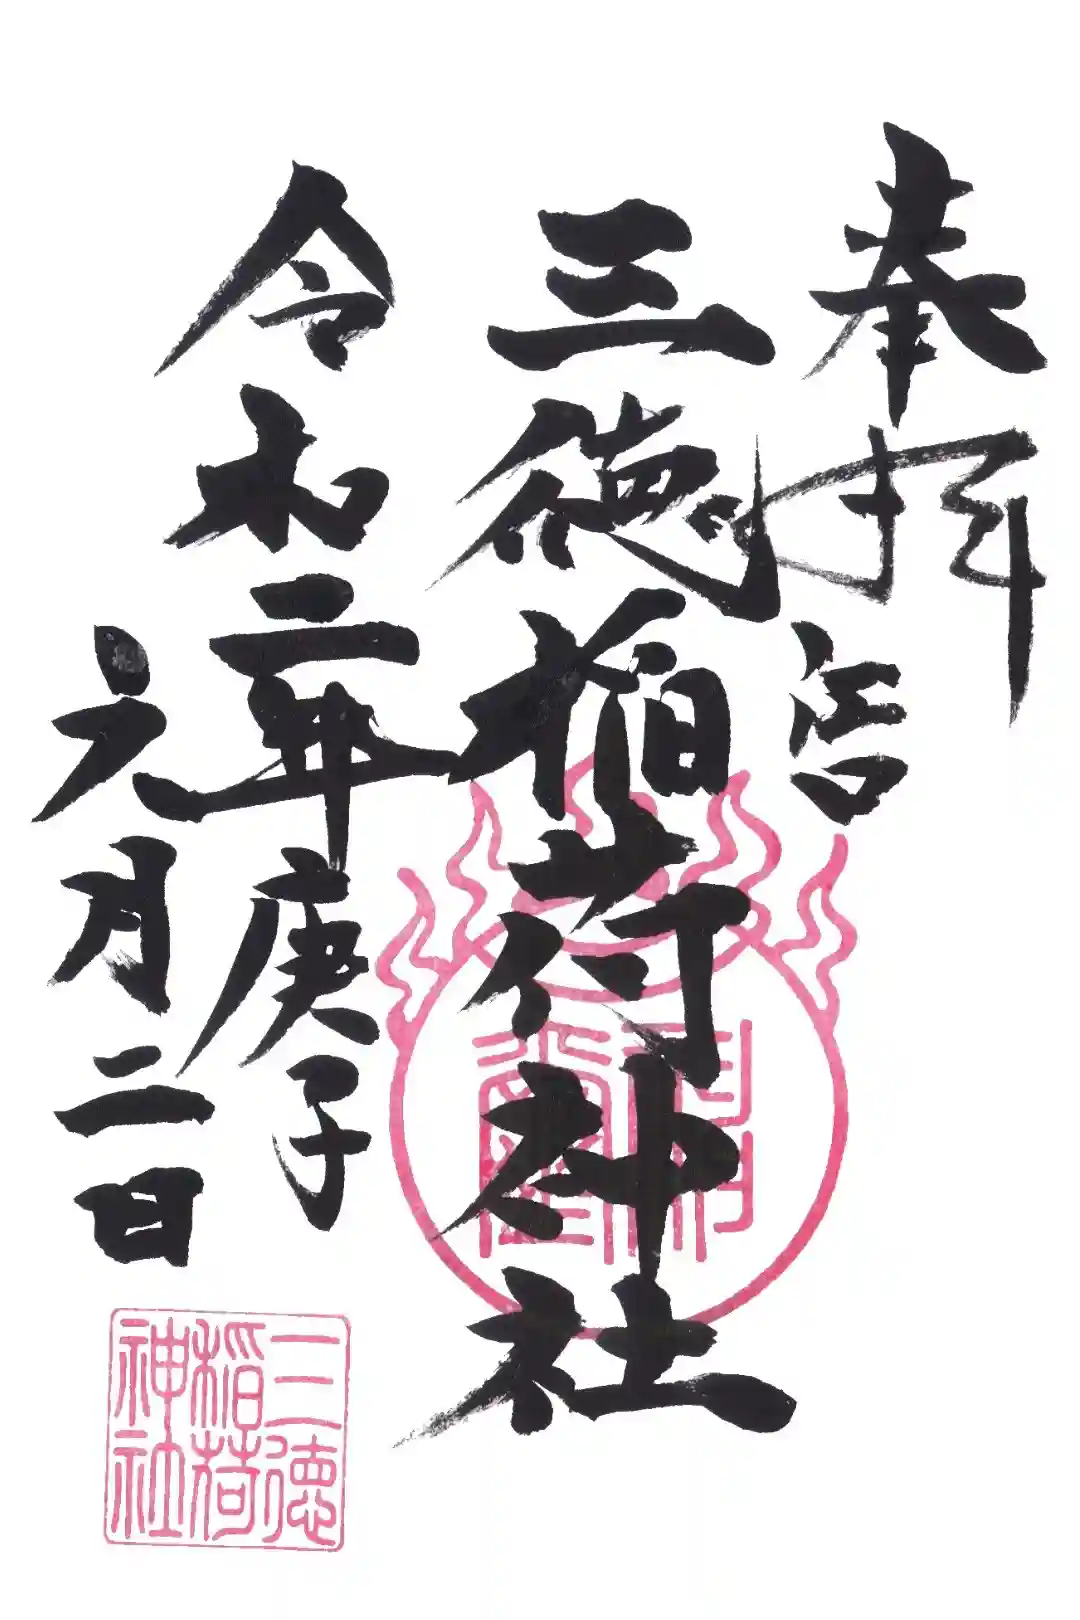 奉拝
三徳稲荷神社
令和二年庚子
元月二日
三徳
稲荷
神社